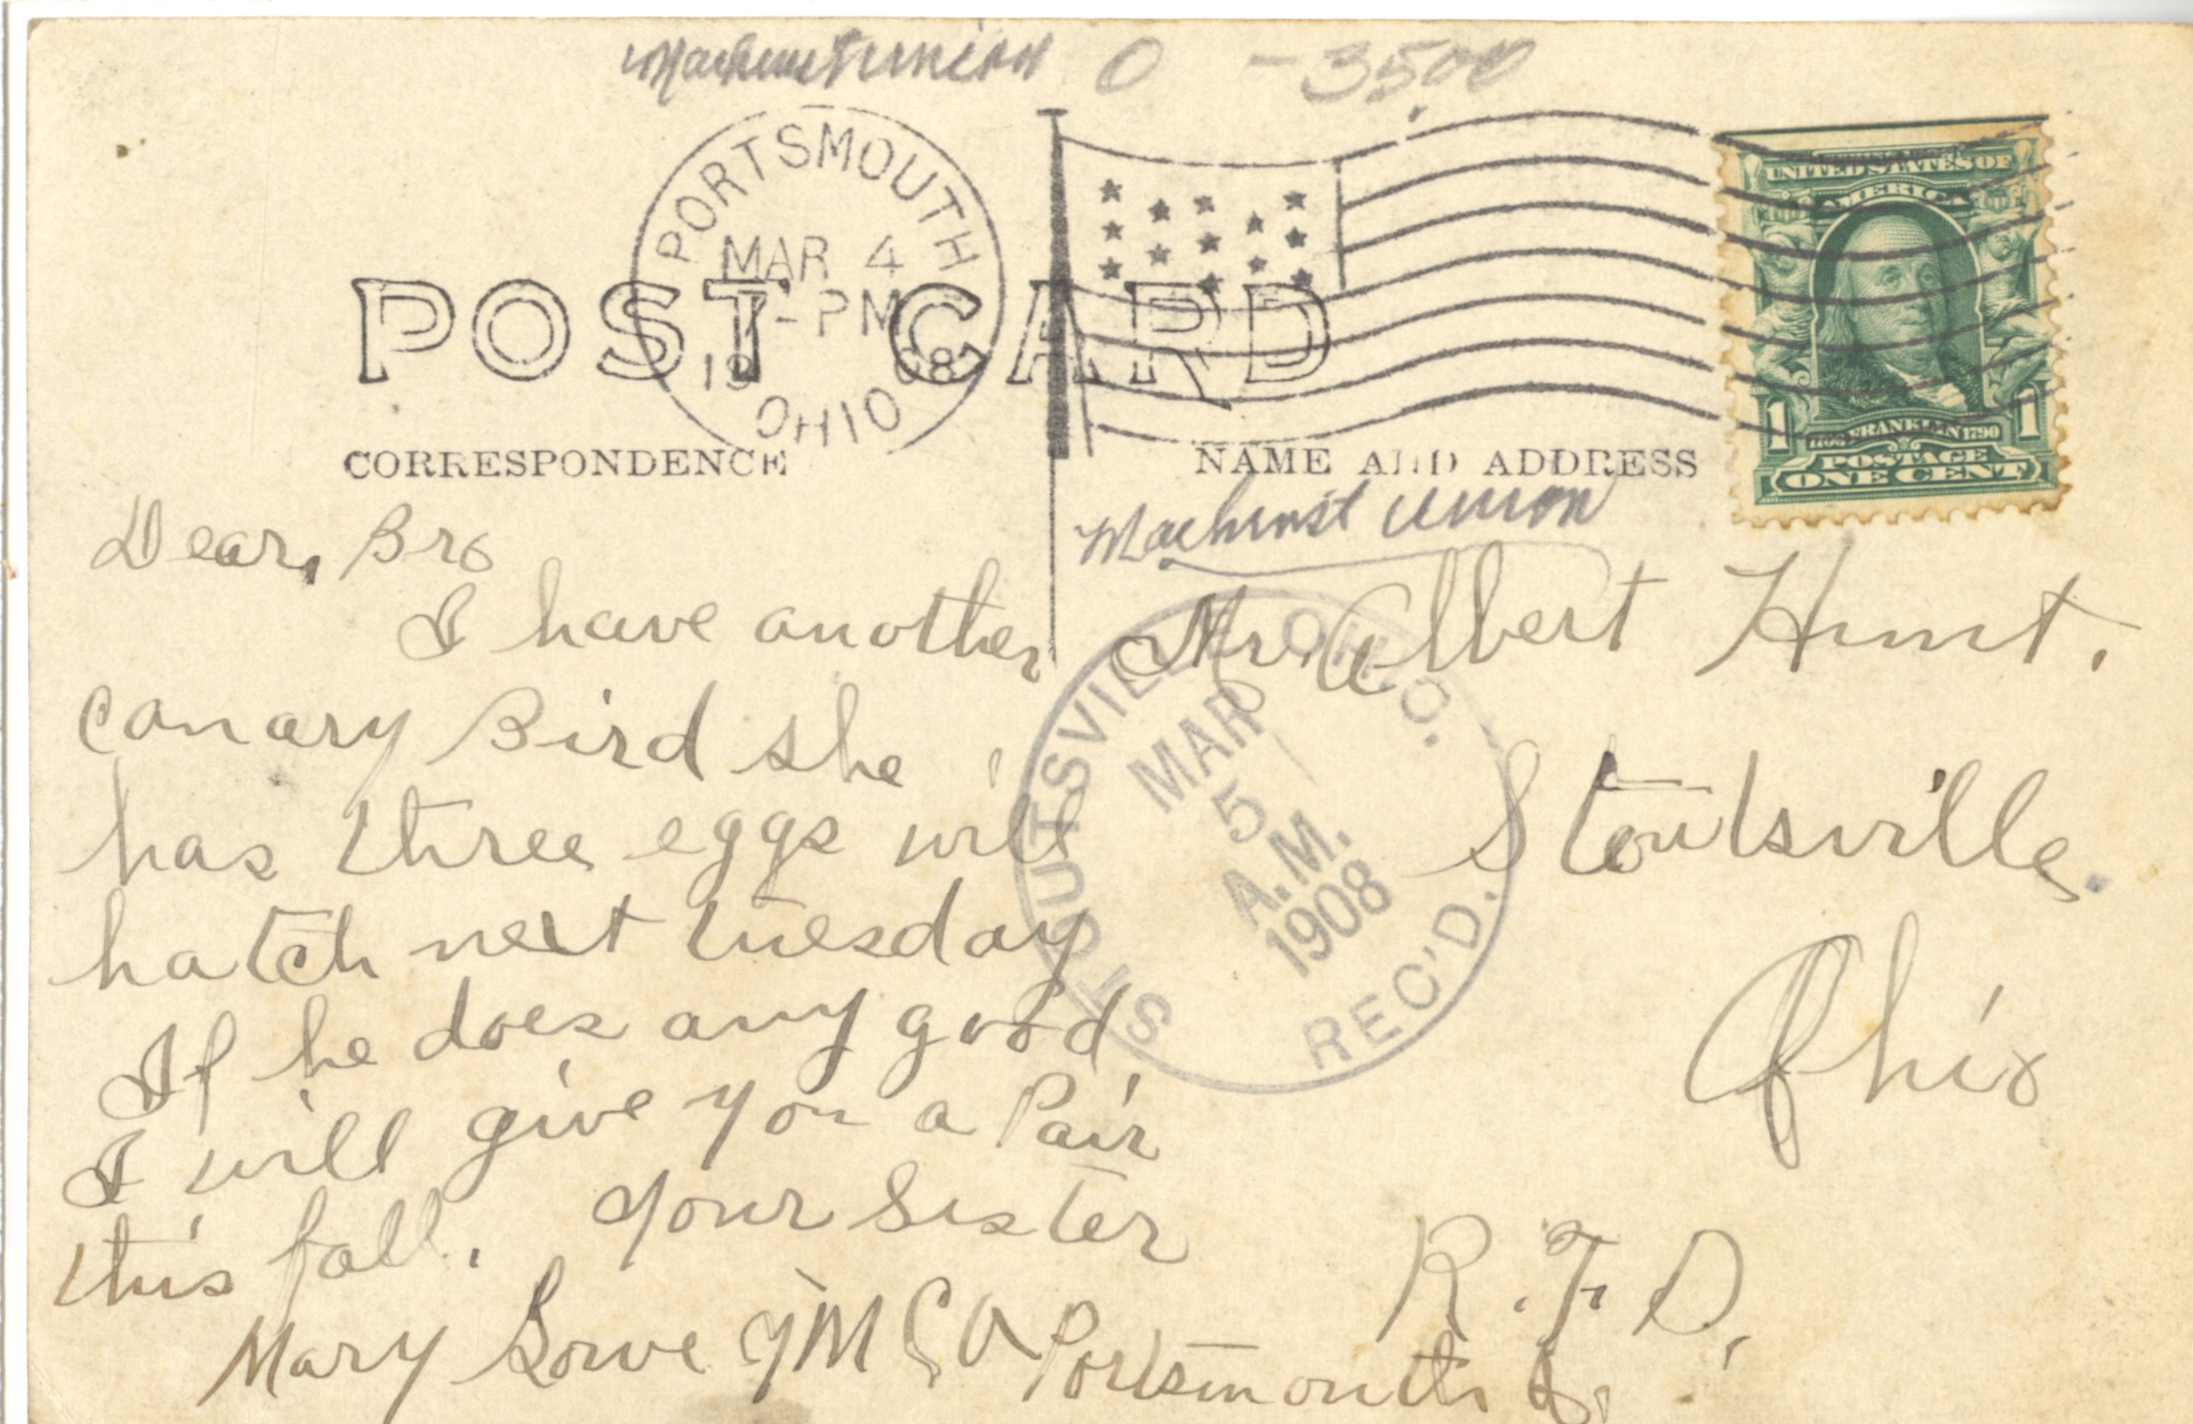 Machinist Union O - 35.00
PORTSMOUTH
MAR 4
7-PM
1908
OHIO
POST CARD
UNITED STATES OF
AMERICA
1 1
1706 FRANKLIN 1790
POSTAGE
ONE CENT
CORRESPONDENCE
NAME AND ADDRESS
Machinst Union
Dear, Bro
I have another
canary Bird she
has three eggs will
hatch next tuesday
If he does any good
I will give you a Pair
this fall. your Sister
Mary Lowe YMCA Portsmouth O.
Mr. Albert Hunt.
Stoutsville.
Ohio
R.F.D.
STOUTSVILLE OHIO.
MAR
5
A.M.
1908
REC'D.